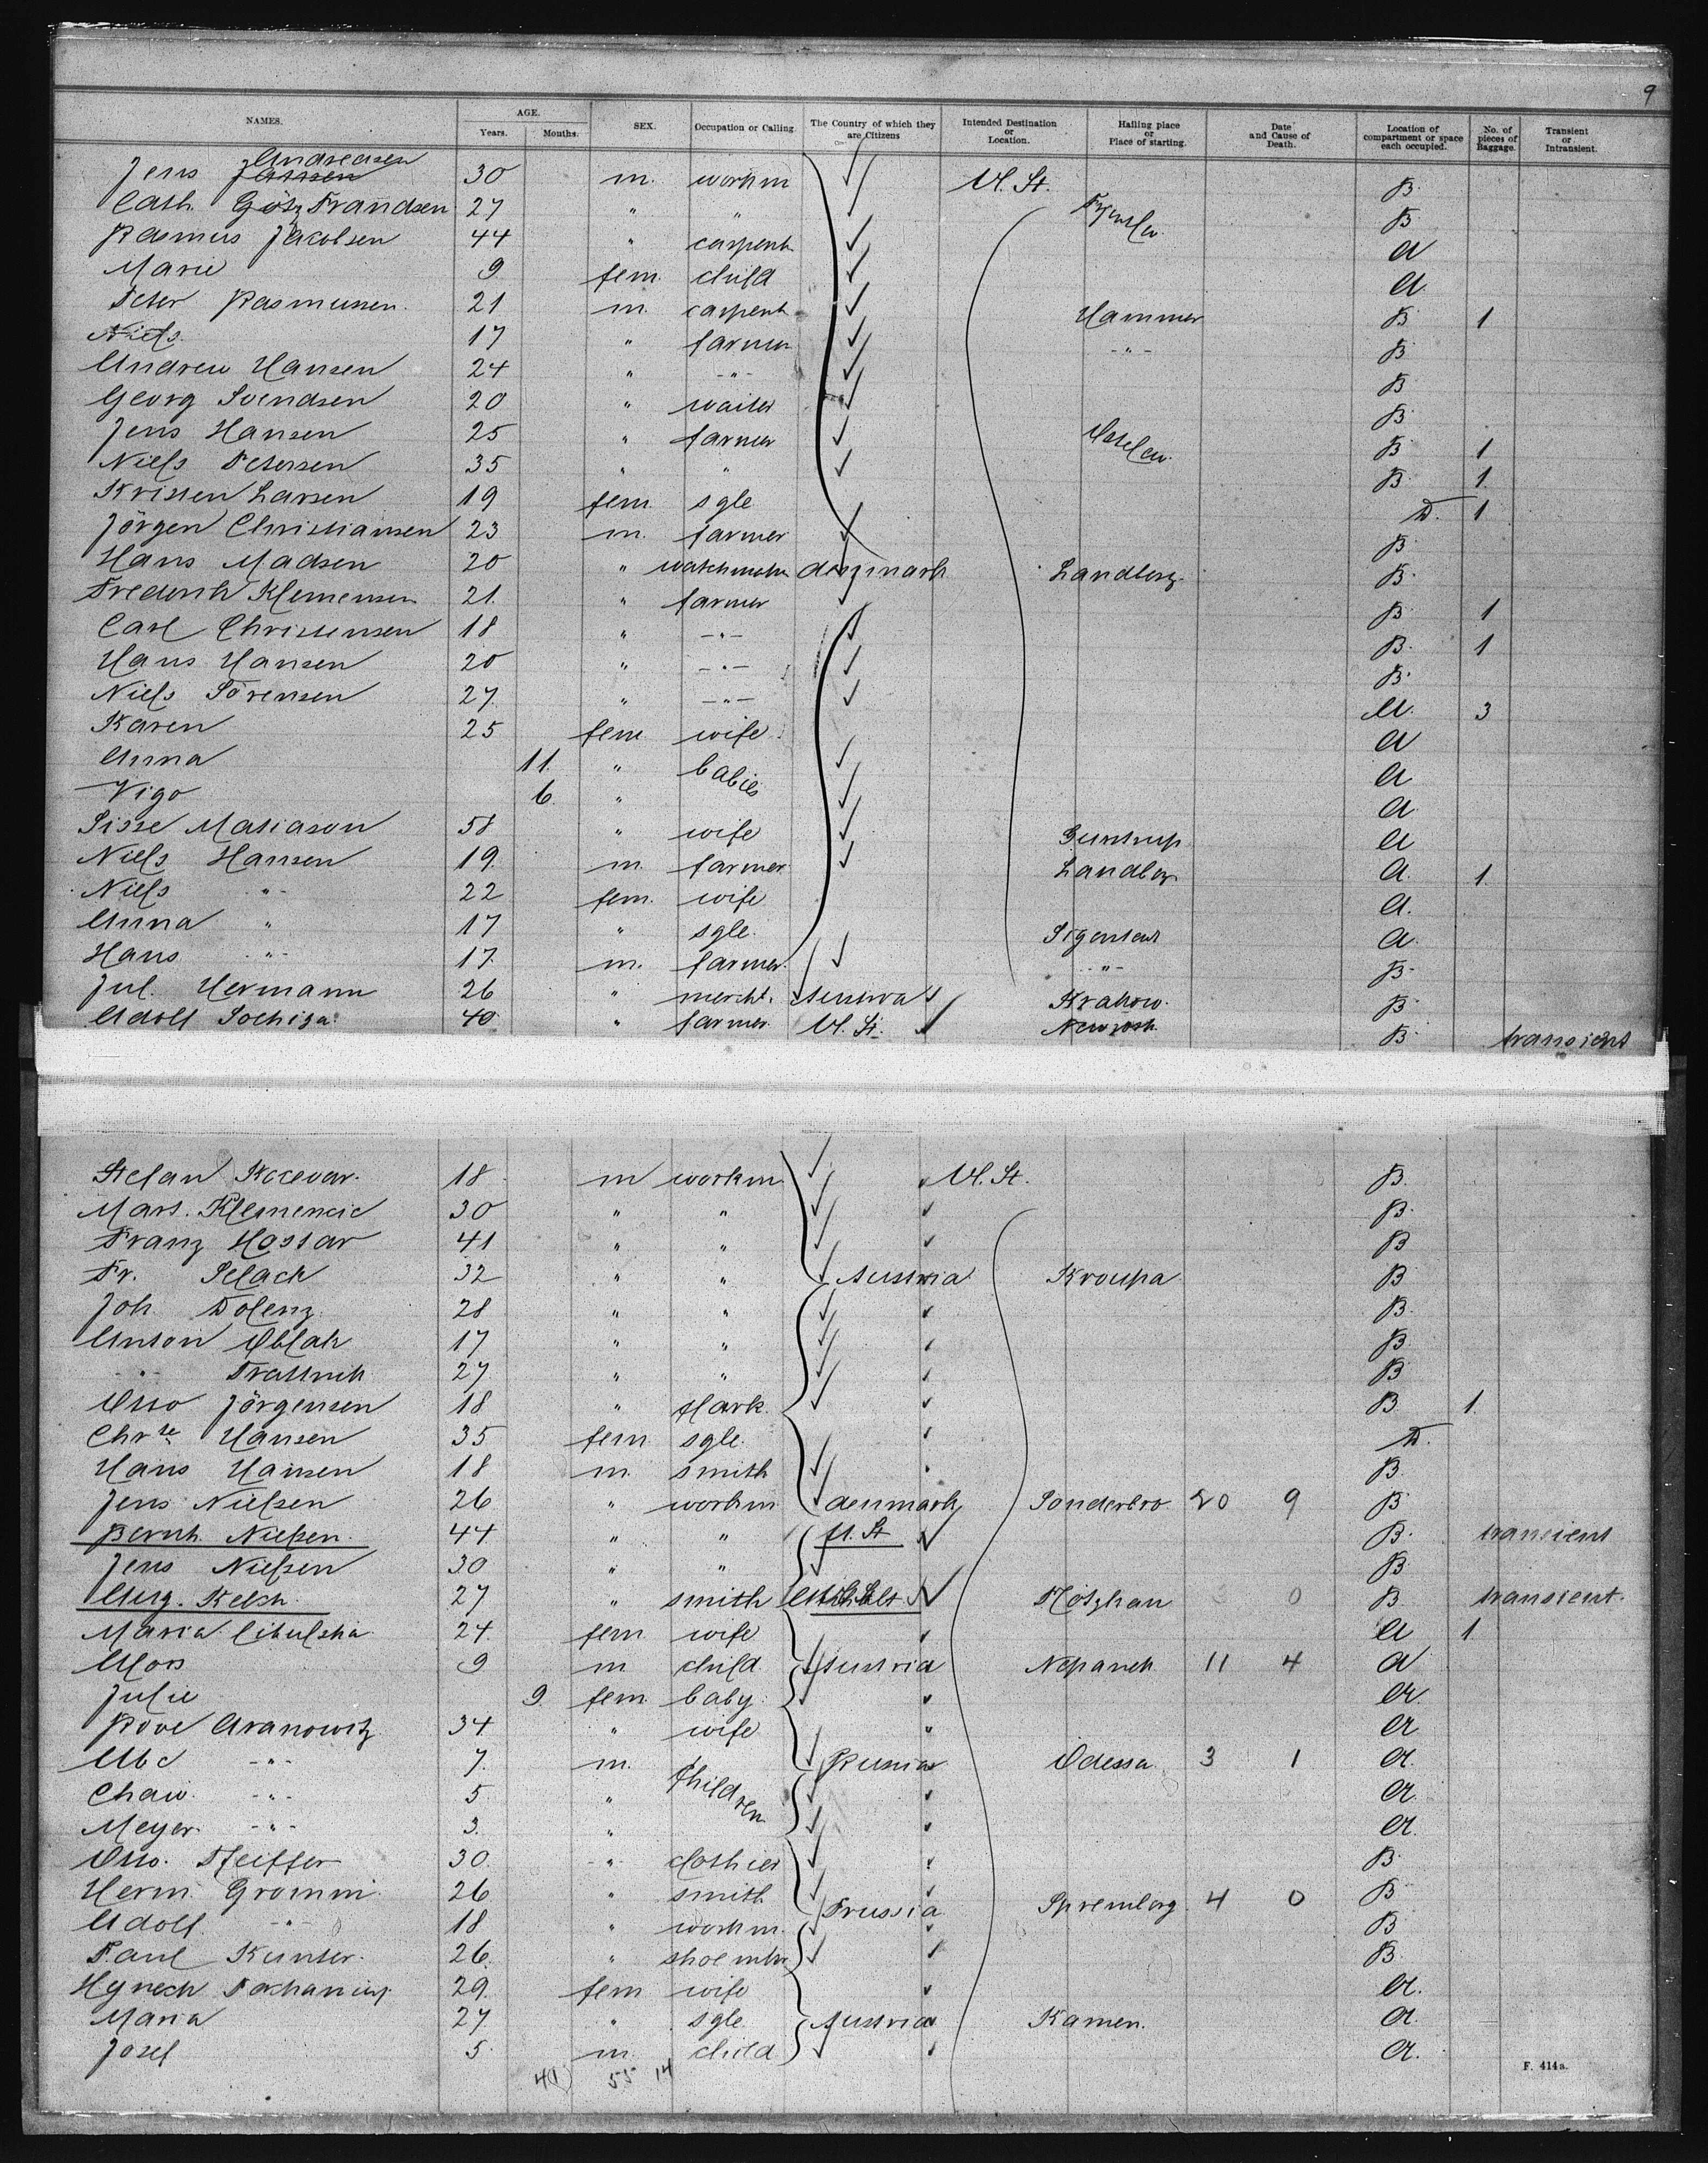 9
NAMES. AGE. Years. Months. SEX. Occupation or Calling. The Country of which they are Citizens Intended Destination or Location. Hailing place or Place of starting. Date and Cause of Death. Location of compartment or space each occupied. No. of pieces of Baggage. Transient or Intransient.
Jens Andreasen 30 m. workm U. St. B.
Cath. Götz Frandsen 27 " " B
Rasmus Jakobsen 44 " carpent. a
Marie 9 fem. child a.
Peter Rasmussen. 21 m. carpent. Hammer B 1
Niels 17 " farmer -"- B
Andrew Hansen 24 " -"- B
Georg Svendsen 20 " waiter B
Jens Hansen 25 " farmer B 1
Niels Petersen 35 " " B 1.
Kristen Larsen 19 fem sgle D. 1
Jörgen Christiansen 23 m. farmer B
Hans Madsen 20 " denmark Landberg. B
Frederik Klemensen 21. " farmer B 1
Carl Christensen 18 " -"- B. 1
Hans Hansen 20 " -"- B.
Niels Sörensen 27. " -"- a. 3
Karen 25 fem wife a
Anna 11. " babies a
Vigo 6. " a.
Sisse Matiason 58 " wife a
Niels Hansen 19. m. farmer Landberg a. 1.
Niels -"- 22 fem. wife a.
Anna " 17 " sgle. a.
Hans -"- 17. m. farmer. -"- B
Jul. Hermann 26 " mercht. Austria Krakow. B
Adolf 40 " farmer. U. St. New york B transient
Stefan 18 m workm. U. St. B.
Mart. Klemencic 30 " " B.
Franz 41 " " B
Fr. Selack 32 " " Austria Kroupa B
Joh. Dolenz 28 " " B.
Anton Oblak 17 " " B
-"- Trattnik 27. " " B
Otto Jörgensen 18 " B 1.
Chr.te Hansen 35 fem sgle. D.
Hans Hansen 18 m. smith B
Jens Nielsen 26 " workm denmark Sonderbro 20 9 B
Bernh. Nielsen. 44 " " U. St B. transient
Jens Nielsen 30 " " B
Aug. Kelch. 27 " smith 0 B transient.
Maria Cibulska 24. fem. wife a 1.
Mors 9 m child Austria 11 4 a
Julie 9. fem. baby. a.
Rove Aranowitz 34 " wife a
Abe -"- 7. m. children Russia Odessa 3 1 a.
Chaw. -"- 5 " a.
Meyer. -"- 3. " a.
Otto. Pfeiffer 30. -"- clothier B.
Herm. Gromm 26 " smith Prussia Spremberg. 4 0 B
Adolf. -"- 18 " workm. B
Paul Kunter. 26. " shoemkr B.
Hynech 29. fem wife a.
Maria 27 " sgle Austria Kamen. a.
Josef 5. m. child a.
41 55 14
F. 414a.